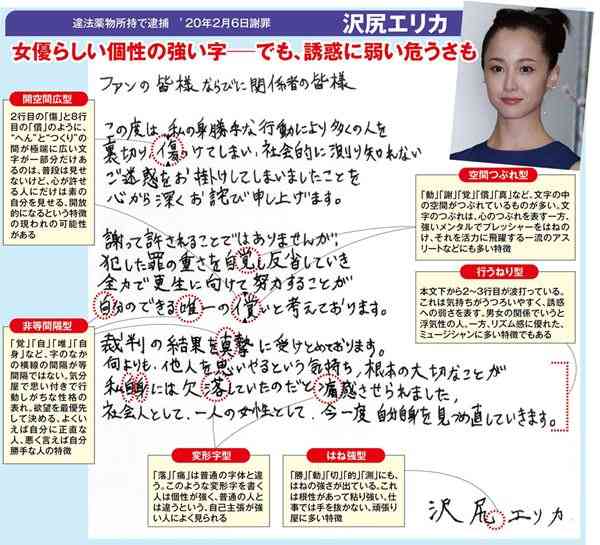 違法薬物所持で逮捕 '20年2月6日謝罪
沢尻エリカ
女優らしい個性の強い字──でも、誘惑に弱い危うさも
ファンの皆様ならびに関係者の皆様
この度は、私の身勝手な行動により多くの人を
裏切り、傷つけてしまい、社会的に測り知れない
ご迷惑をお掛けしてしまいましたことを
心から深くお詫び申し上げます。
謝って許されることではありませんが、
犯した罪の重さを自覚し反省していき
全力で更生に向けて努力することが
自分のできる唯一の償いと考えております。
裁判の結果を真摯に受けとめております。
何よりも、他人を思いやるという気持ち、根本の大切なことが
私自身には欠落していたのだと痛感させられました。
社会人として、一人の女性として、今一度自分自身を見つめ直していきます。
沢尻エリカ
開空間広型
2行目の「傷」と8行
目の「償」のように、
“へん”と“つくり”の
間が極端に広い文
字が一部分だけあ
るのは、普段は見
せないけど、心が許せ
る人にだけは素の
自分を見せる、開放
的になるという特徴
の現われの可能性
がある
空間つぶれ型
「動」「謝」「覚」「償」「真」など、文字の中
の空間がつぶれているものが多い。文
字のつぶれは、心のつぶれを表す一方、
強いメンタルでプレッシャーをはねの
け、それを活力に飛躍する一流のアス
リートなどにも多い特徴
行うねり型
本文下から2〜3行目が波打っている。
これは気持ちがうつろいやすく、誘惑
への弱さを表す。男女の関係でいうと
浮気性の人。一方、リズム感に優れた、
ミュージシャンに多い特徴でもある
非等間隔型
「覚」「自」「唯」「自
身」など、字のなか
の横線の間隔が等
間隔ではない。気分
屋で思い付きで行
動しがちな性格の
表れ。欲望を最優先
して決める。よくい
えば自分に正直な
人、悪く言えば自分
勝手な人の特徴
変形字型
「落」「痛」は普通の字体と違
う。このような変形字を書く
人は個性が強く、普通の人と
は違うという、自己主張が強
い人によく見られる
はね強型
「勝」「動」「切」「的」「測」にも、
はねの強さが出ている。これ
は根性があって粘り強い。仕
事では手を抜かない、頑張り
屋に多い特徴